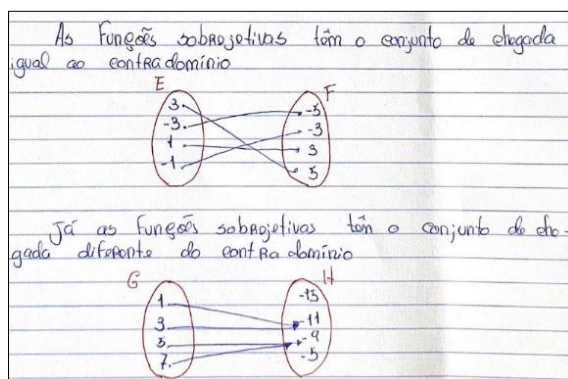 As Funções sobrejetivas têm o conjunto de chegada
igual ao contradomínio
E F
3 -5
-3 -3
1 3
-1 5
Já as Funções sobrejetivas tên o conjunto de che-
gada diferente do contradomínio
G H
1 -15
3 -11
5 -9
7 -5